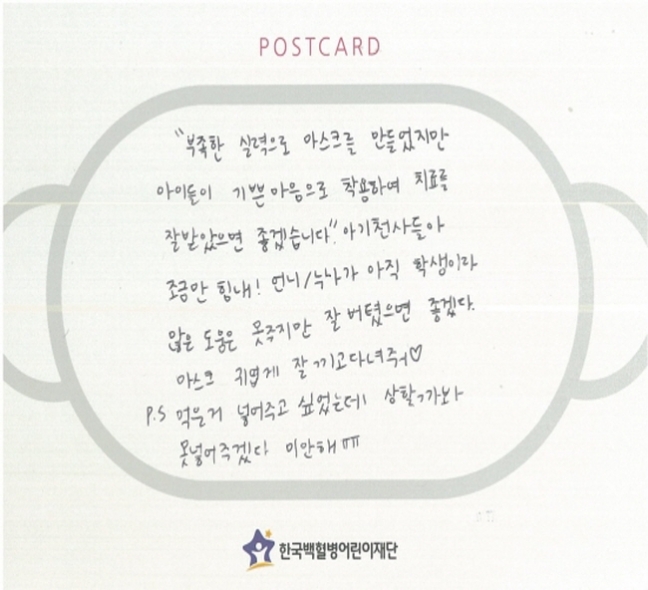 POSTCARD
"부족한 실력으로 마스크를 만들었지만
아이들이 기쁜 마음으로 착용하여 치료를
잘받았으면 좋겠습니다". 아기천사들아
조금만 힘내! 언니/누나가 아직 학생이라
많은 도움은 못주지만 잘 버텼으면 좋겠다.
마스크 귀엽게 잘 끼고다녀줘♡
P.S 먹을거 넣어주고 싶었는데 상할까봐
못넣어주겠다 미안해 ㅠㅠ
한국백혈병어린이재단